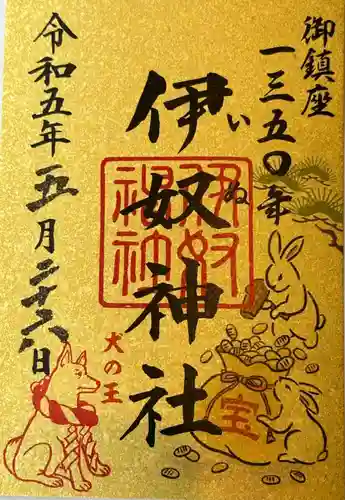 御鎮座
一三五〇年
伊奴神社
いぬ
伊奴
神社
令和五年五月二十六日
犬の王
宝